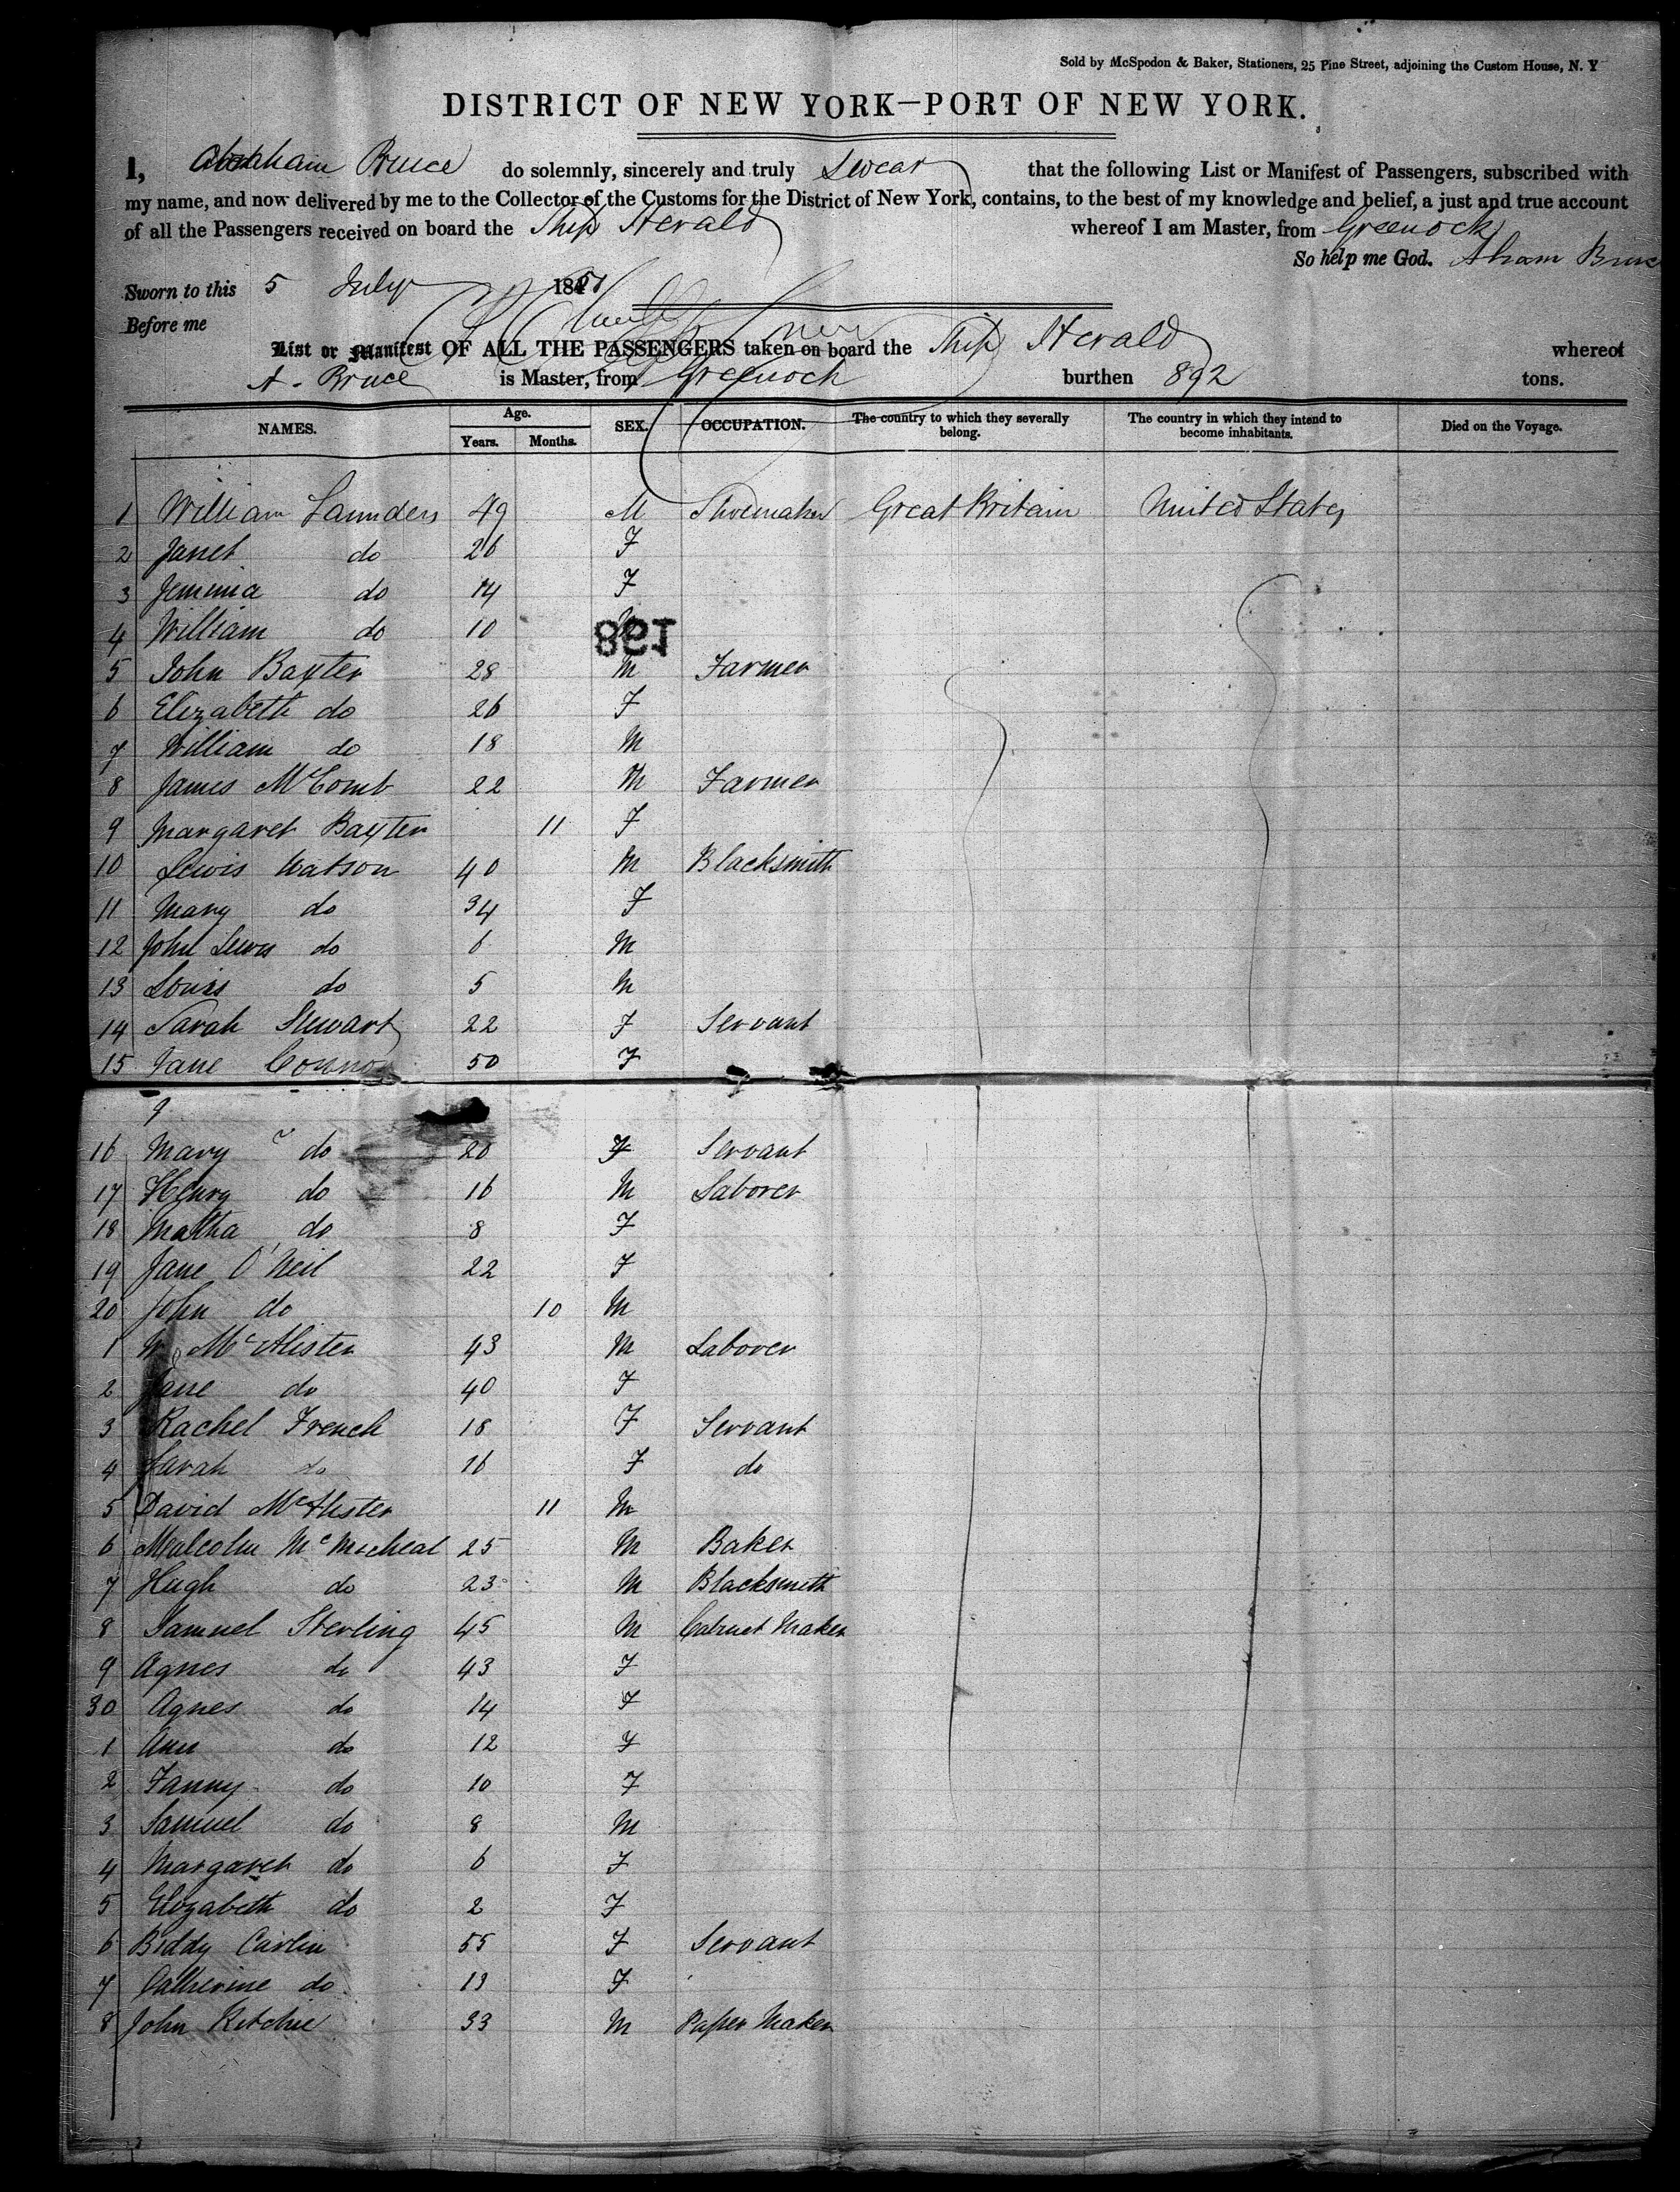 Sold by McSpedon & Baker, Stationers, 25 Pine Street, adjoining the Custom House, N. Y
DISTRICT OF NEW YORK—PORT OF NEW YORK.
I, Abraham Bruce do solemnly, sincerely and truly Swear that the following List or Manifest of Passengers, subscribed with
my name, and now delivered by me to the Collector of the Customs for the District of New York, contains, to the best of my knowledge and belief, a just and true account
of all the Passengers received on board the Ship Herald whereof I am Master, from Greenock
So help me God. Abram Bruce
Sworn to this 5 July 18
Before me
List or Manifest OF ALL THE PASSENGERS taken on board the Ship Herald whereof
A. Bruce is Master, from Greenock burthen 892 tons.
NAMES. Age. Years. Months. SEX. OCCUPATION. The country to which they severally belong. The country in which they intend to become inhabitants. Died on the Voyage.
1 William Saunders 49 M Shoemaker Great Britain United States
2 Janet do 26 F
3 Jemmia do 14 F
4 William do 10 M
198
5 John Baxter 28 M Farmer
6 Elizabeth do 26 F
7 William do 18 M
8 James McComb 22 M Farmer
9 Margaret Baxter 11 F
10 Lewis Watson 40 M Blacksmith
11 Mary do 34 F
12 John Lewis do 6 M
13 Louis do 5 M
14 Sarah Stewart 22 F Servant
15 Jane Connor 50 F
16 Mary do 20 F Servant
17 Henry do 16 M Laborer
18 Matha do 8 F
19 Jane O'Neil 22 F
20 John do 10 M
1 Wm McAlister 43 M Laborer
2 Jane do 40 F
3 Rachel French 18 F Servant
4 Sarah do 16 F do
5 David McAlister 11 M
6 Malcolm McMicheal 25 M Baker
7 Hugh do 23 M Blacksmith
8 Samuel Sterling 45 M Cabinet Maker
9 Agnes do 43 F
30 Agnes do 14 F
1 Ann do 12 F
2 Fanny do 10 F
3 Samuel do 8 M
4 Margaret do 6 F
5 Elizabeth do 2 F
6 Biddy Carlin 55 F Servant
7 Catherine do 13 F
8 John Ritchie 33 M Paper Maker